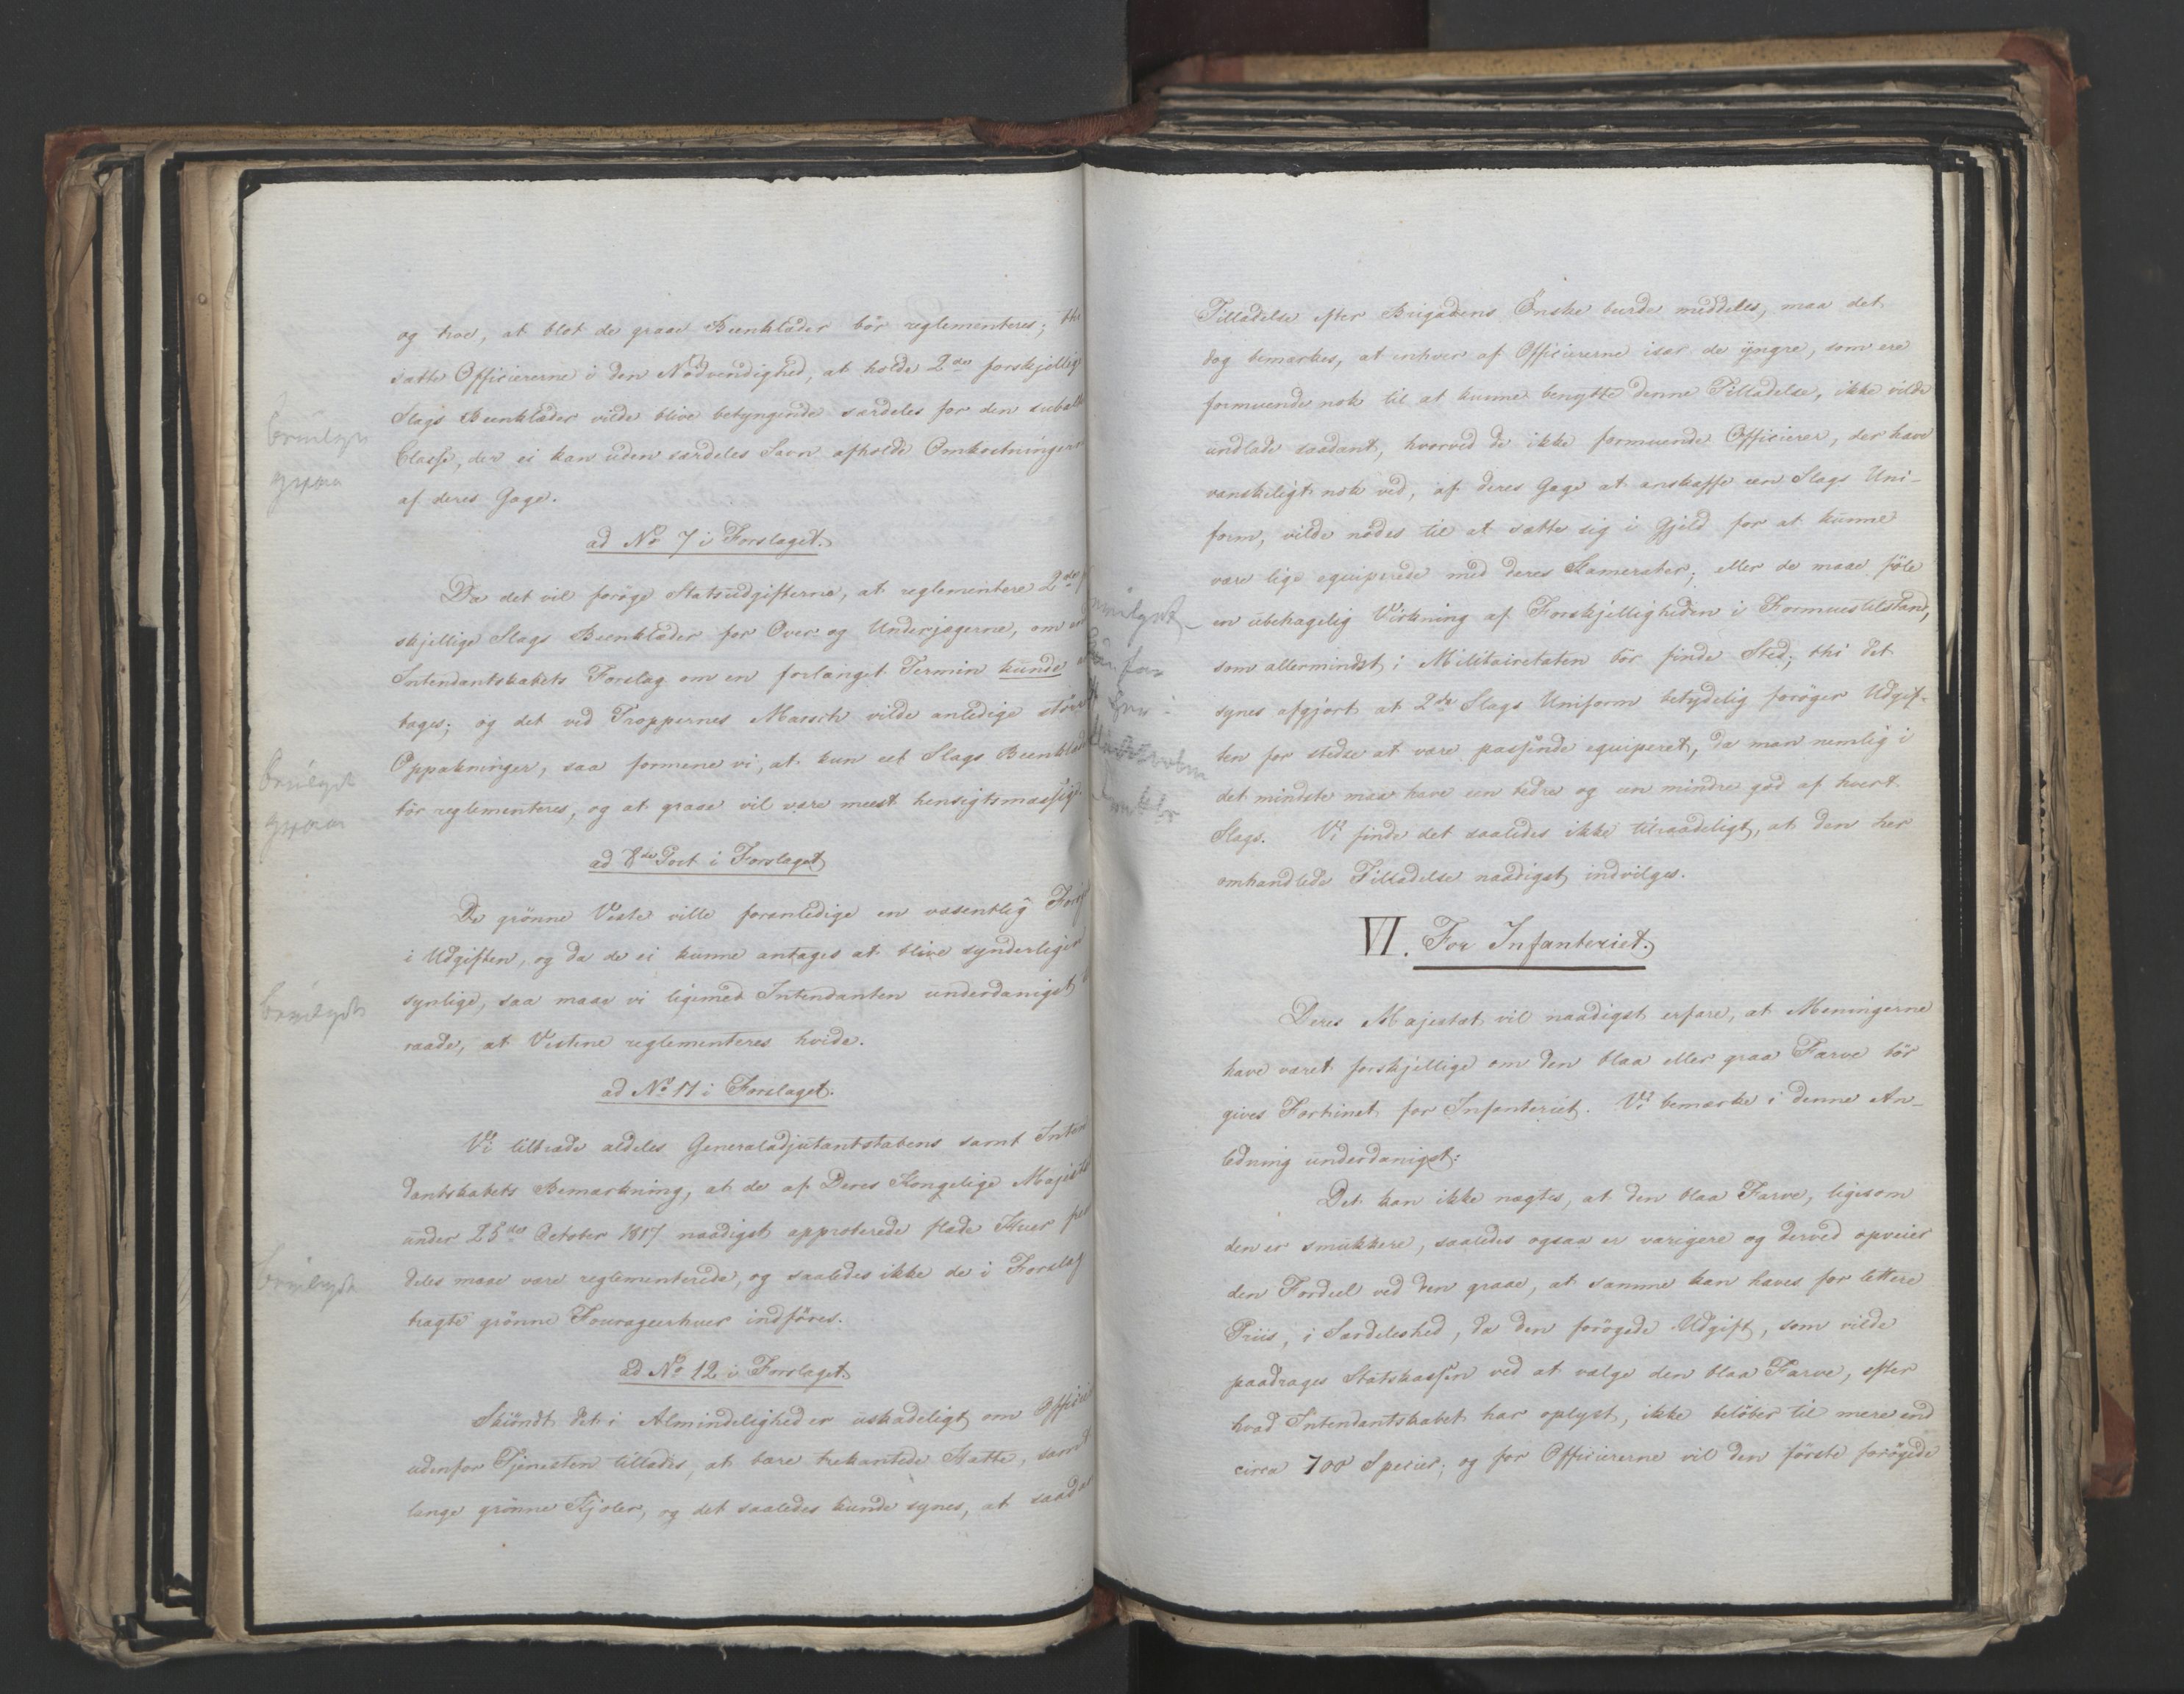 og troe, at blot de graae Beenklæder bör reglementeres; thi
sætte Officiererne i den Nödvendighed, at holde 2de forskjellig
Slags Beenklæder vilde blive betyngende særdeles for den subalt
Classe, der ei kan uden særdeles Savn afholde Omkostningern
af deres Gage.
ad No 7 i Forslaget.
Da det vil foröge Statsudgifterne, at reglementere 2de f
skjellige Slags Beenklæder for Over og Underjægerne, om
Intendantskabets Forslag om en forlænget Termin kunde
tages; og det ved Troppernes Marsch vilde anledige störr
Oppakninger, saa formene vi, at kun eet Slags Beenklæd
bör reglementeres, og at graae vil være meest hensigtsmæssigt.
ad 8de Post i Forslaget
De grönne Veste ville foranledige en væsentlig Forög
i Udgiften, og da de ei kunne antages at blive synderligen
synlige, saa maae vi ligemed Intendanten underdanigst
raade, at Vestene reglementeres hvide.
ad No 11 i Forslaget.
Vi tiltræde aldeles Generaladjutantstabens samt Inten
dantskabets Bemærkning, at de af Deres Kongelige Majestæt
under 25de October 1817 naadigst approberede flade Huer
deles maae være reglementerede, og saaledes ikke de i Forslag
bragte grönne Fourageerhuer indföres.
ad No 12 i Forslaget.
Skiöndt det i Almindelighed er uskadeligt om Officie
udenfor Tjenesten tillades, at bære trekantede Hatte, samt
lange grönne Kjoler, og det saaledes kunde synes, at saada
bevilget
graa
bevilget
graa
bevilget
bevilget
Tilladelse efter Brigadens Önske burde meddeles, maa det
dog bemærkes, at enhver af Officiererne især de yngre, som ere
formuende nok til at kunne benytte denne Tilladelse, ikke vilde
undlade saadant, hvorved de ikke formuende Officierer, der have
vanskeligt nok ved, af deres Gage at anskaffe een Slags Uni-
form, vilde nödes til at sætte sig i Gjeld for at kunne
være lige equiperede med deres Kamerater; eller de maae föle
en ubehagelig Virkning af Forskjelligheden i Formuestilstand,
som allermindst i Militairetaten bör finde Sted; thi det
synes afgjort at 2de Slags Uniform betydelig foröger Udgif-
ten for stedse at være passende equiperet, da man nemlig i
det mindste maa have een bedre og een mindre god af hvert
Slags. Vi finde det saaledes ikke tilraadeligt, at den her
omhandlede Tilladelse naadigst indvilges.
VI. For Infanteriet.
Deres Majestæt vil naadigst erfare, at Meningerne
have været forskjellige om den blaa eller graa Farve bör
gives Fortrinet for Infanteriet. Vi bemærke i denne An-
ledning underdanigst:
Det kan ikke nægtes, at den blaa Farve, ligesom
den er smukkere, saaledes ogsaa er varigere og derved opveier
den Fordeel ved den graae, at samme kan haves for lettere
Priis, i Særdeleshed, da den forögede Udgift, som vilde
paadrages Statskassen ved at vælge den blaa Farve, efter
hvad Intendantskabet har oplyst, ikke belöber til mere end
circa 700 Specier; og for Officiererne vil den förste forögede